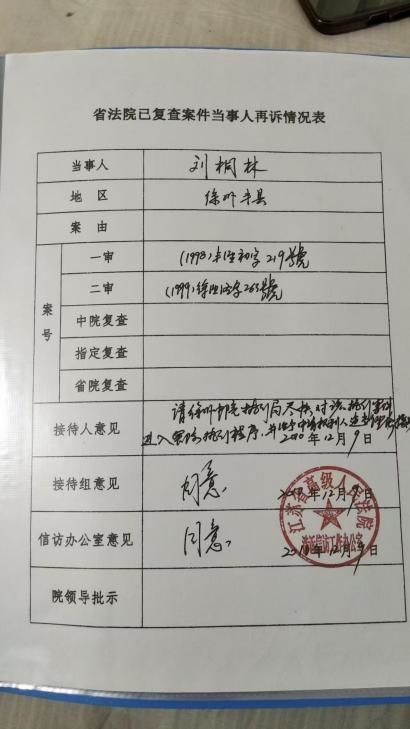 省法院已复查案件当事人再诉情况表
当事人 刘桐林
地区 徐州丰县
案由
案号
一审 (1998)丰经初字219號
二审 (1999)徐经终字263號
中院复查
指定复查
省院复查
接待人意见 请徐州中院执行局尽快对该执行案件
进入实际执行程序,并
2010年12月9日
接待组意见 同意。 2010年12月9日
信访办公室意见 同意。 2010年12月9日
江苏省高级人民法院
涉诉信访工作办公室
院领导批示